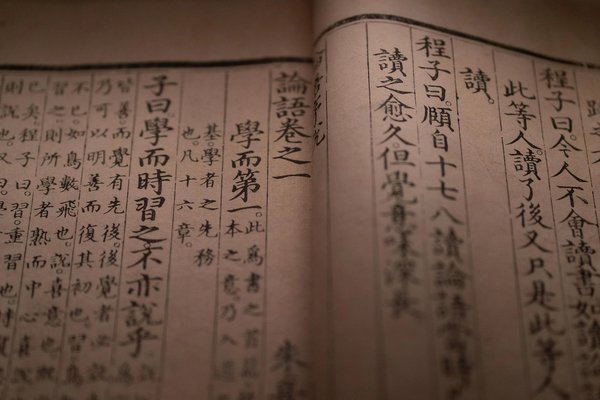 程子曰。今人不會讀書如讀論
此等人。讀了後又只是此等人
讀。
程子曰。頤自十七八讀論語當時
讀之愈久。但覺意味深長
論語卷之一 朱
學而第一。此為書之首篇
本之意。乃入道
基。學者之先務
也。凡十六章。
子曰學而時習之不亦說乎
皆善而覺有先後。後覺者必效
乃可以明善而復其初也。習鳥
不已。如鳥數飛也。說。喜意也。既
習之。則所學者熟而中心喜
已矣。程子曰。習。重習也。時復
則說也。又曰。學